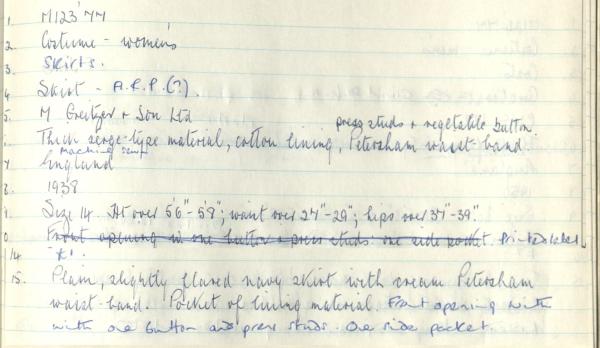 1. M123'77
2. Costume - women's
3. Skirts.
4. Skirt - A.R.P.(?).
5. M Greitzer + Son Ltd
press studs + vegetable button.
. Thick serge-type material, cotton lining, Petersham waist-band
machine sewn
7. England
8. 1938
9. Size 14. Ht over 5'6"-5'8"; waist over 27"-29"; hips over 37"-39"
0. Front opening with one button + press studs: one side pocket. Printed label.
14
15. Plain, slightly flared navy skirt with cream Petersham
waist-band. Pocket of lining material. Front opening with
with one button and press studs. One side pocket